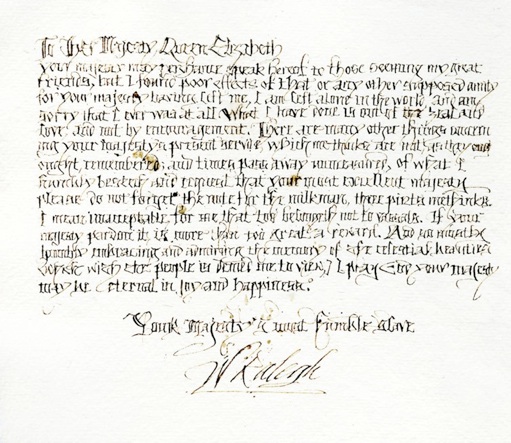 To Her Majesty Queen Elizabeth
Your majesty may perchance speak hereof to those seeming my great
friends, but I found poor effects of that or any other supposed amity
for your majesty having left me, I am left alone in the world and am
sorry that I ever was at all. What I have done is out of zeal and
love and not by encouragement. There are many other things
your majesty's present service, which methinks are not as they
ought remembered, and times pass away unmeasured, of what I
humbly beseech and request that your most excellent majesty
please do not forget the note for the milkman, three pints methinks
I mean inacceptable for me that to not to vassals. If your
majesty pardon it is more than too great a reward. And so mostly
humbly embracing and admiring the memory of celestial beauties
with the people is denied me to view, I pray God your majesty
may be eternal in joy and happiness.
Your Majesty's most humble slave
W Ralegh